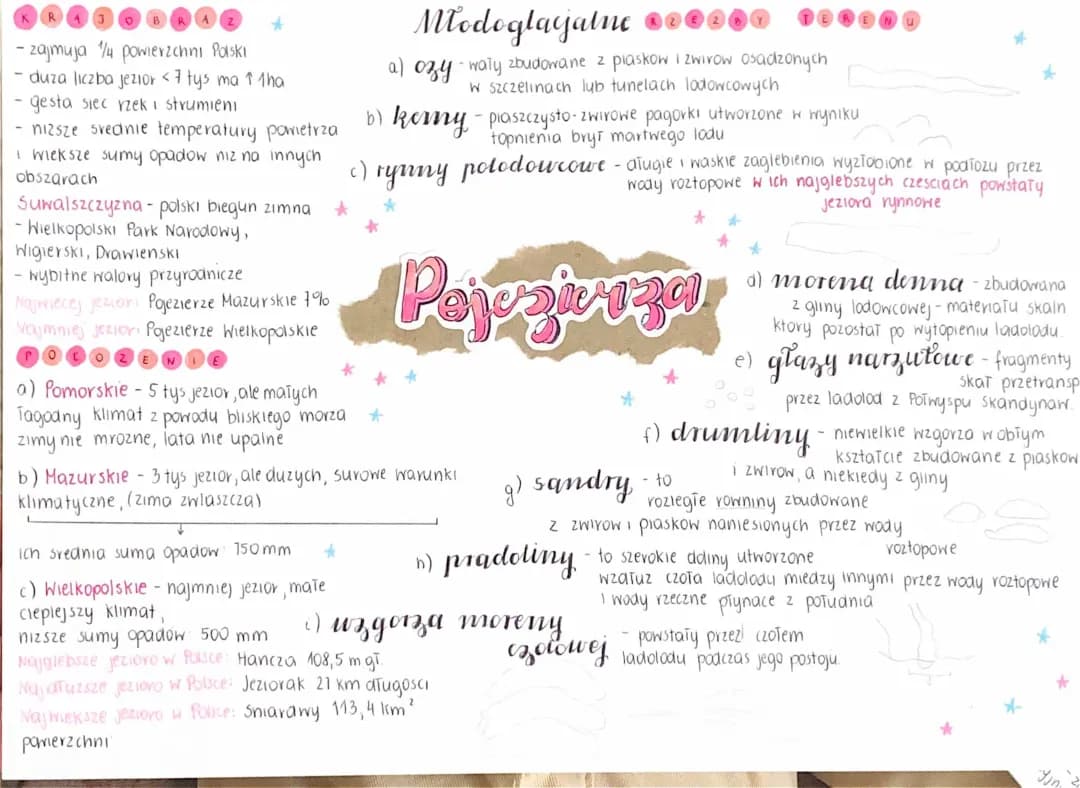 KRAJOBRAZ
- zajmuja 1/4 powierzchni Polski
- duza liczba jezior <7 tys ma ↑ 1ha
- gesta siec rzek i strumieni
- nizsze srednie temperatury powietrza
i wieksze sumy opadow niz na innych
obszarach
Suwalszczyzna - polski biegun zimna
- Wielkopolski Park Narodowy,
Wigierski, Drawienski
- wybitne walory przyrodnicze
Najwiecej jezior: Pojezierze Mazurskie 7%
Najmniej jezior: Pojezierze Wielkopolskie
POŁOZENIE
a) Pomorskie - 5 tys jezior, ale małych
łagodny klimat z powodu bliskiego morza
zimy nie mrozne, lata nie upalne
b) Mazurskie - 3 tys jezior, ale duzych, surowe warunki
klimatyczne, (zima zwlaszcza)
ich srednia suma opadow: 750 mm
c) Wielkopolskie - najmniej jezior, małe
cieplejszy klimat,
nizsze sumy opadow 500 mm
Najglebsze jezioro w Polsce: Hancza 108,5 m gł.
Najdłuzsze jezioro w Polsce: Jeziorak 27 km długosci
Najwieksze jezioro w Polsce: Sniardwy 113,4 km²
powierzchni
Młodoglacjalne RZEZBY TERENU
a) ozy - wały zbudowane z piaskow i zwirow osadzonych
w szczelinach lub tunelach lodowcowych
b) kemy - piaszczysto-zwirowe pagorki utworzone w wyniku
topnienia brył martwego lodu
c) rynny polodowcowe - długie i waskie zaglebienia wyzłobione w podłozu przez
wody roztopowe w ich najglebszych czesciach powstały
jeziora rynnowe
Pojezierza
d) morena denna - zbudowana
z gliny lodowcowej - materiału skaln
ktory pozostał po wytopieniu ladolodu.
e) głazy narzutowe - fragmenty
skał przetransp
przez ladolod z Połwyspu Skandynaw.
f) drumliny - niewielkie wzgorza w obłym
kształcie zbudowane z piaskow
i zwirow, a niekiedy z gliny
g) sandry - to
rozległe rowniny zbudowane
z zwirow i piaskow naniesionych przez wody
roztopowe
h) pradoliny - to szerokie doliny utworzone
wzdłuz czoła ladolodu miedzy innymi przez wody roztopowe
i wody rzeczne płynace z południa
i) wzgorza moreny
czołowej - powstały przez czołem
ladolodu podczas jego postoju.